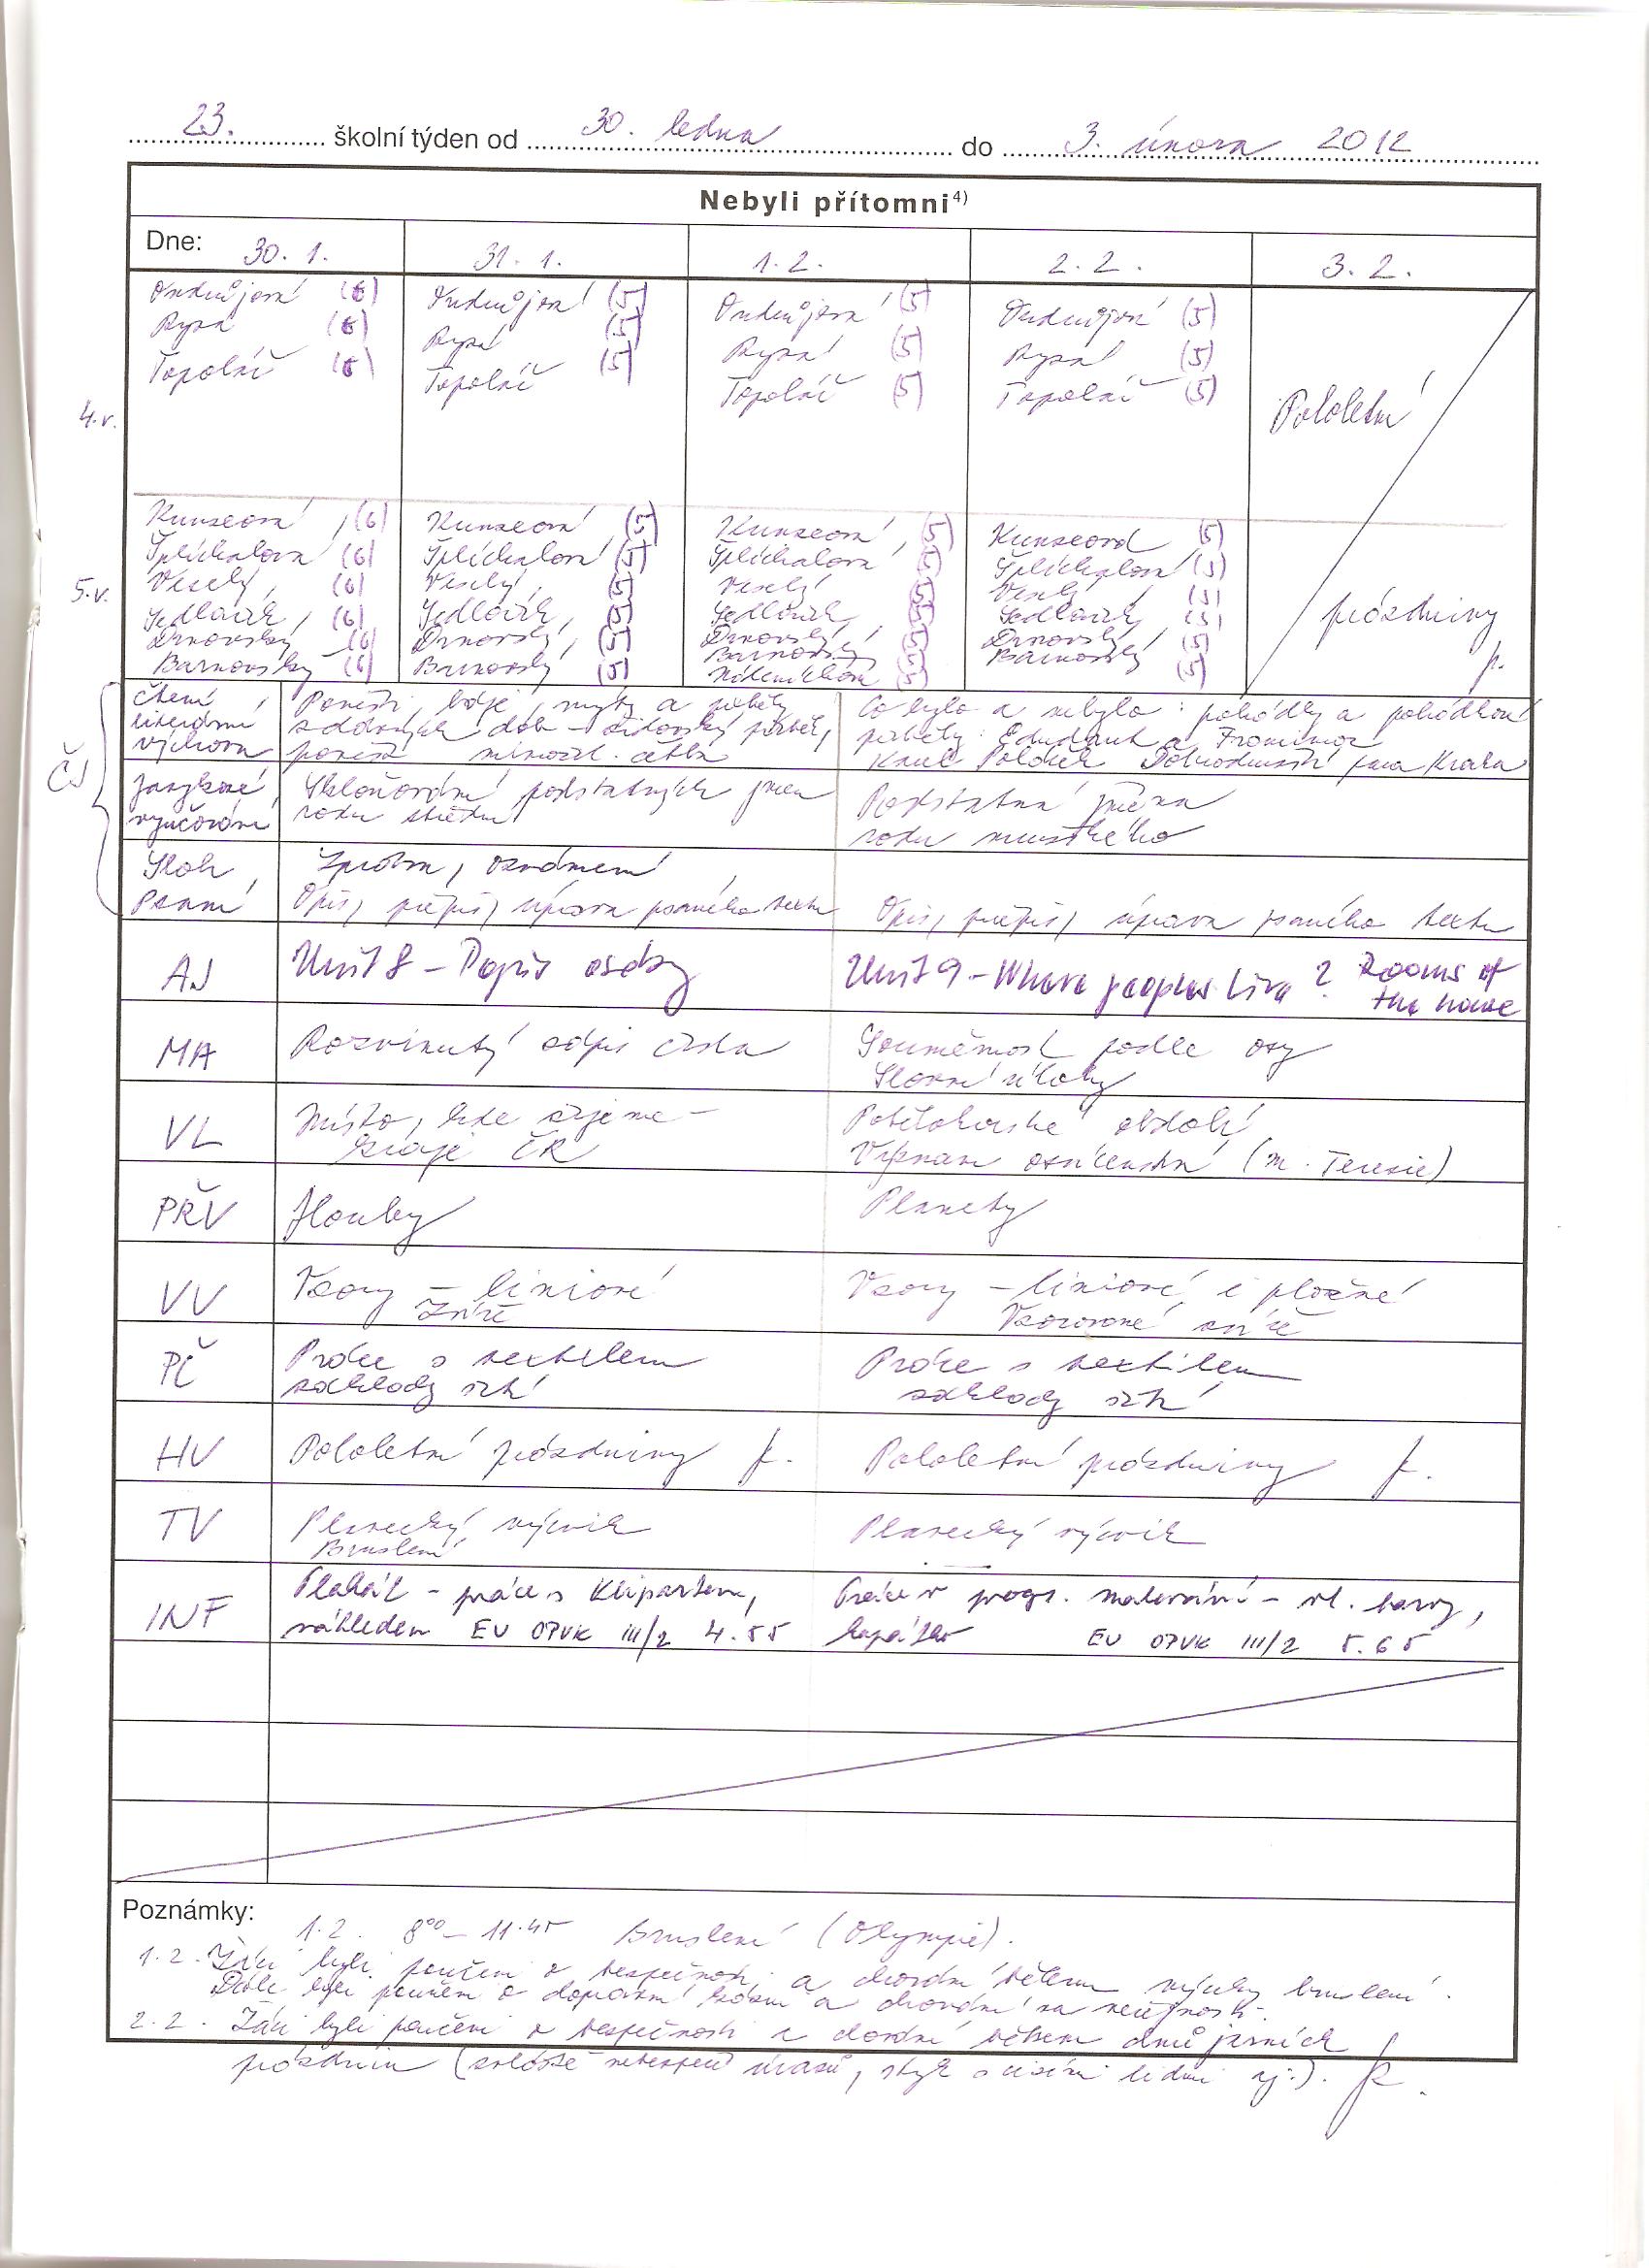 23. školní týden od 30. ledna do 3. února 2012
Nebyli přítomni⁴⁾
Dne: 30. 1. 31. 1. 1. 2. 2. 2. 3. 2.
(6) (5) (5) (5)
Rysá (6) Rysá (5) Rysá (5) Rysá (5)
Topolář (6) Topolář (5) Topolář (5) Topolář (5)
4.r. Pololetní
Kunzeová (6) Kunzeová (5) Kunzeová (5) Kunzeová (5)
Šplíchalová (6) Šplíchalová (5) Šplíchalová (5) Šplíchalová (5)
5.r. Veselý (6) Veselý (5) Veselý (5) Veselý (5)
Sedláček (6) Sedláček (5) Sedláček (5) Sedláček (5) prázdniny
Drnovský (6) Drnovský (5) Drnovský (5) Drnovský (5)
Barnovský (6) Barnovský (5) Barnovský Barnovský (5)
ČJ
Čtení, literární výchova
Pověsti, báje, mýty a příběhy
z dávných dob – židovský příběh,
pověst mimočít. četba
Co bylo a nebylo: pohádky a pohádkové
příběhy: Edudant a Francimor
Karel Poláček Dobrodružství pana Kraka
Jazykové vyučování
Skloňování podstatných jmen
rodu středu
Podstatná jména
rodu mužského
Sloh, Zpráva, oznámení
Psaní Opis, přepis, úprava psaného textu Opis, přepis, úprava psaného textu
AJ Unit 8 – Popis osoby Unit 9 – Where peoples live? Rooms of the house
MA Rozvinutý zápis čísla Souměrnost podle osy
Slovní úlohy
VL Místo, kde žijeme – Pobělohorské období
kraje ČR Význam osvícenství (M. Terezie)
PŘV Houby Planety
VV Vzory – liniové Vzory – liniové i plošné
zvíře Vzorované zvíře
PČ Práce s textilem Práce s textilem
základy šití základy šití
HV Pololetní prázdniny Pololetní prázdniny
TV Plavecký výcvik Plavecký výcvik
Bruslení
INF Plakát – práce s Klipartem, Práce v progr. malování – vl. barvy,
náhledem EU OPVK III/2 4.55 kapátko EU OPVK III/2 5.65
Poznámky:
1.2. 8⁰⁰ – 11.45 bruslení (Olympie).
1.2. Žáci byli poučeni o bezpečnosti a chování během výuky bruslení.
Dále byli poučeni o dopravní kázni a chování na veřejnosti.
2.2. Žáci byli poučeni o bezpečnosti a chování během dnů jarních
prázdnin (zvláště nebezpečí úrazů, styk s cizími lidmi aj.).